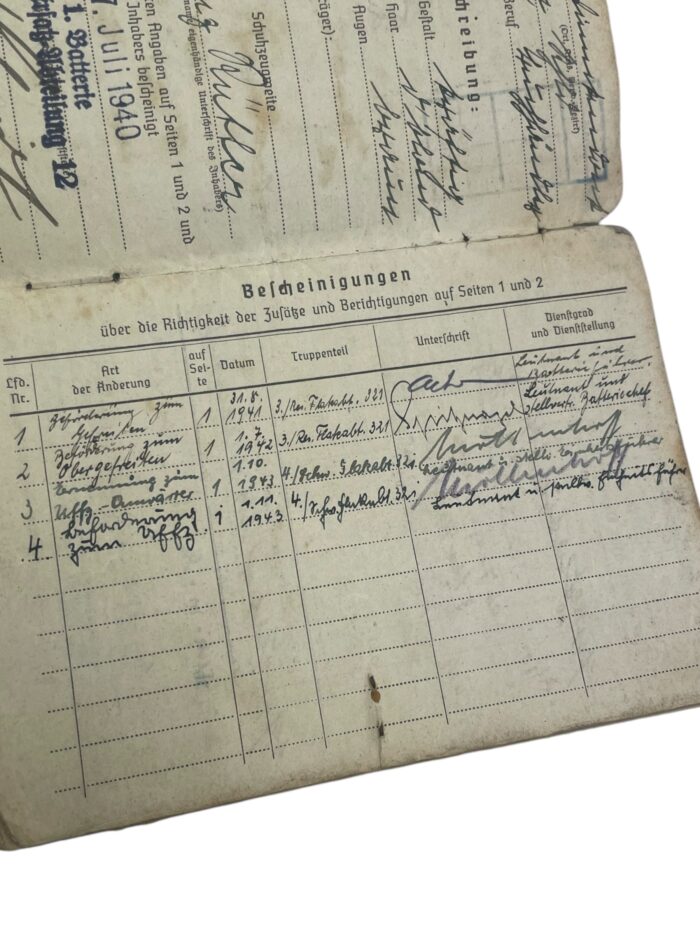 Beruf
(Ort, Kreis, Verw.-Bezirk)
schreibung:
Gestalt
Haar
Augen
träger):
Schuhzeugweite
Rüther
eigenhändige Unterschrift des Inhabers)
zten Angaben auf Seiten 1 und 2 und
Inhabers bescheinigt
7. Juli 1940
1. Batterie
Abteilung 12
Bescheinigungen
über die Richtigkeit der Zusätze und Berichtigungen auf Seiten 1 und 2
Lfd. Nr.
Art der Änderung
auf Seite
Datum
Truppenteil
Unterschrift
Dienstgrad und Dienststellung
1 Beförderung zum Gefreiten 1 31.8. 1941. 3./Res. Flakabt. 321 Leutnant und Batterieführer.
2 Beförderung zum Obergefreiten 1 1.7. 1942 3./Res. Flakabt. 321 Leutnant und stellvertr. Batteriechef
3 Ernennung zum Uffz.-Anwärter 1 1.10. 1943 4./schw. Flakabt. 321 Leutnant u. stellv.
4 Beförderung zum Uffz 1 1.11. 1943 4./schw. Flakabt. 321 Leutnant u. stellv. Einheitsführer